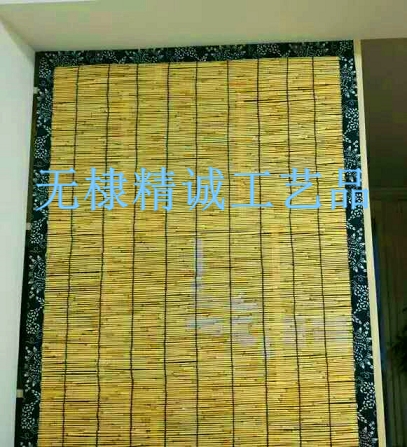 无棣精诚工艺品